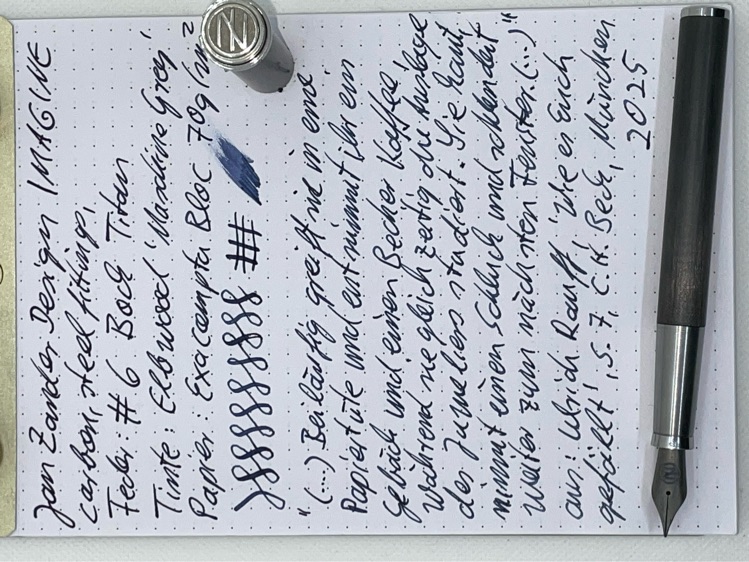 Jan Zander Design IMAGINE
carbon, steel fittings,
Feder: #6 Bock Titan
Tinte: Elbwood 'Maritime Grey'
Papier: Exacompta Bloc 70g/m²
"(...) Beiläufig greift sie in eine
Papiertüte und entnimmt ihr ein
Gebäck und einen Becher Kaffee,
während sie gleichzeitig die Auslage
des Juweliers studiert. Sie kaut,
nimmt einen Schluck und schlendert
weiter zum nächsten Fenster. (...)"
aus: Ulrich Raulff 'Wie es Euch
gefällt', S. 7, C.H. Beck, München
2025